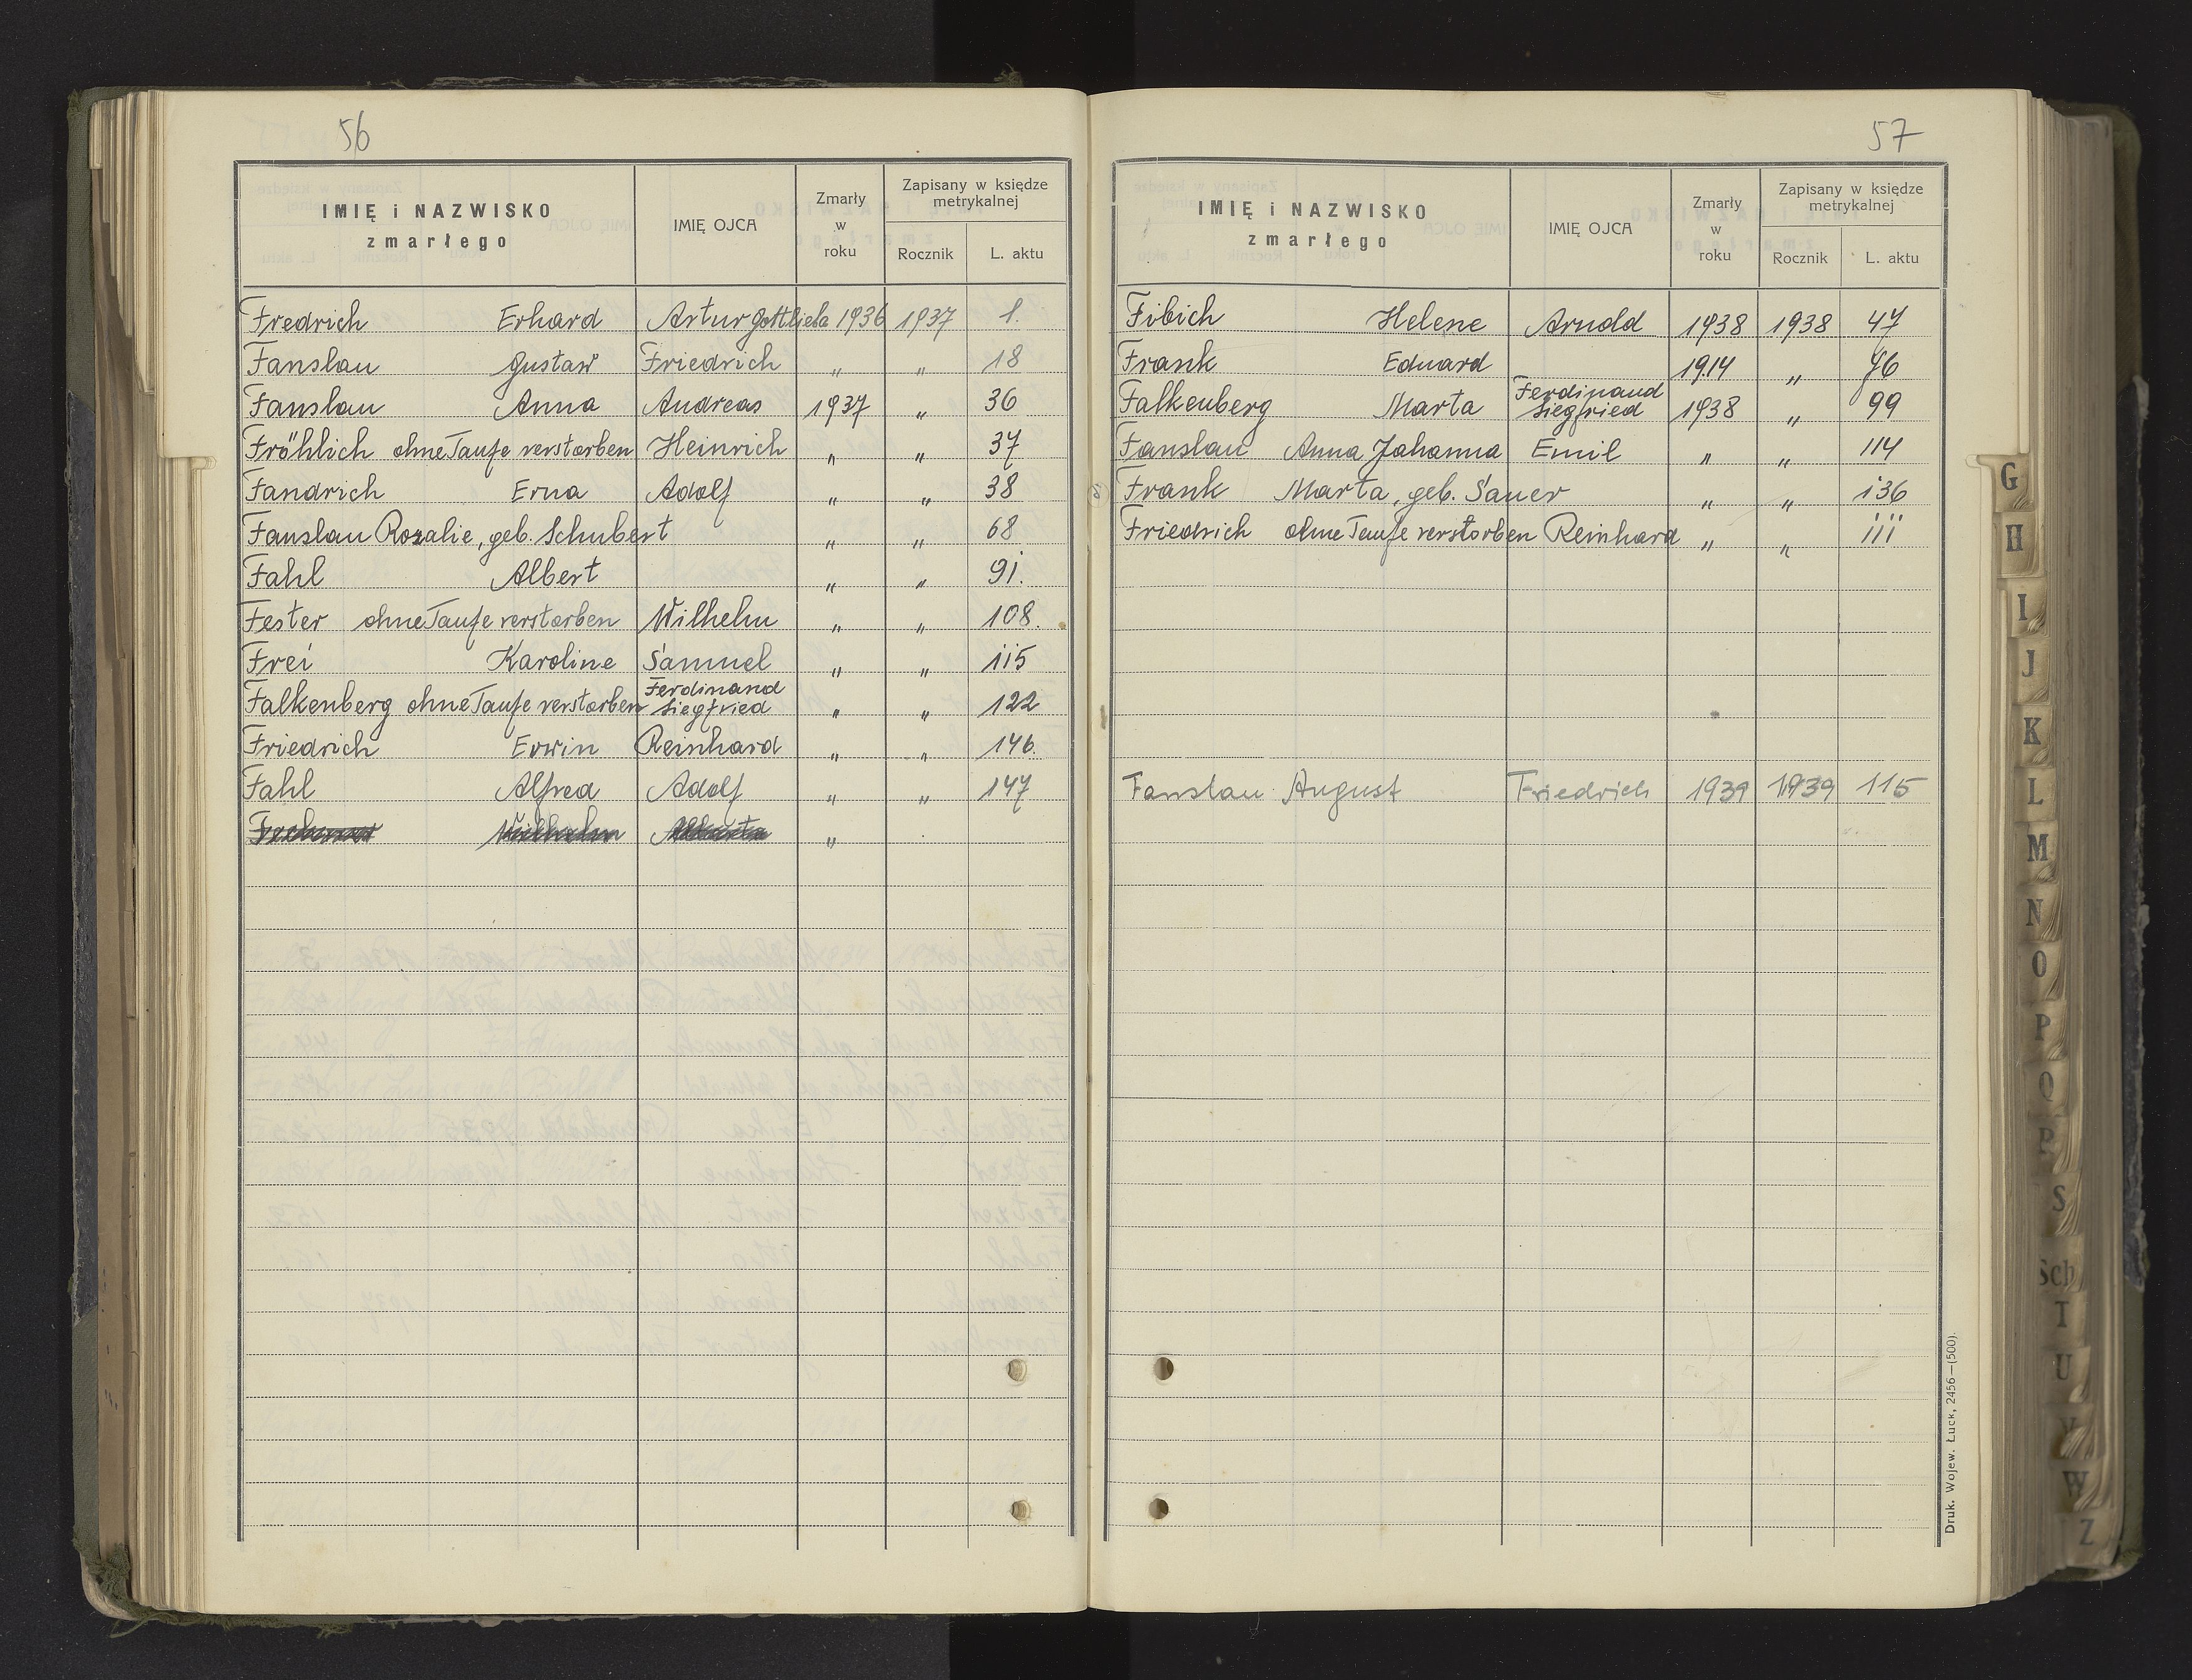 56
IMIĘ i NAZWISKO
zmarłego
IMIĘ OJCA
Zmarły
w
roku
Zapisany w księdze
metrykalnej
Rocznik
L. aktu
Fredrich Erhard Artur Gottlieba 1936 1937 1.
Fanslau Gustaw Friedrich " " 18
Fanslau Anna Andreas 1937 " 36
Fröhlich ohne Taufe verstorben Heinrich " " 37
Fandrich Erna Adolf " " 38
Fanslau Rozalie, geb. Schubert " " 68
Fahl Albert " " 91.
Fester ohne Taufe verstorben Wilhelm " " 108.
Frei Karoline Samuel " " 115
Falkenberg ohne Taufe verstorben Ferdinand Siegfried " " 122
Friedrich Erwin Reinhard " " 146.
Fahl Alfred Adolf " " 147
Wilhelm "
57
IMIĘ i NAZWISKO
zmarłego
IMIĘ OJCA
Zmarły
w
roku
Zapisany w księdze
metrykalnej
Rocznik
L. aktu
Fibich Helene Arnold 1938 1938 47
Frank Eduard 1914 "
Falkenberg Marta Ferdinand Siegfried 1938 " 99
Fanslau Anna Johanna Emil " " 114
Frank Marta, geb. Sauer " " 136
Friedrich ohne Taufe verstorben Reinhard " " 111
Fanslau August Friedrich 1939 1939 115
Druk. Wojew. Łuck, 2456—(500).
G
H
I
J
K
L
M
N
O
P
Q
R
S
Sch
T
U
V
W
Z